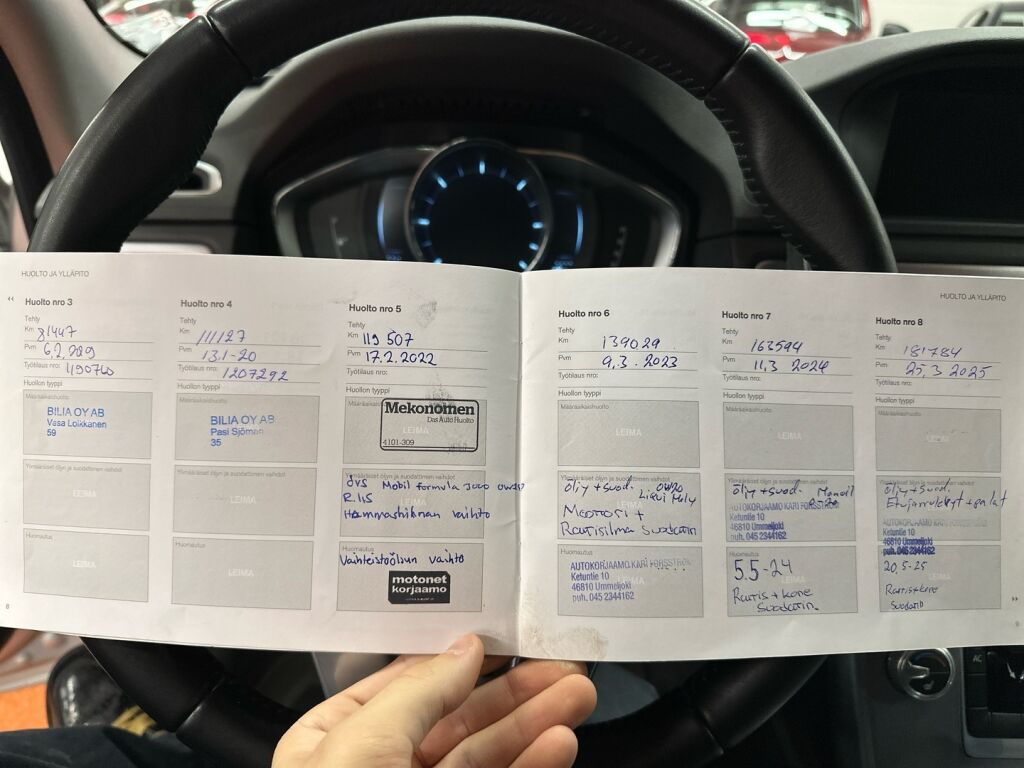 HUOLTO JA YLLÄPITO
Huolto nro 3
Tehty
Km 81447
Pvm 6.2.
Työtilaus nro: 1190740
Huollon tyyppi
Määräaikaishuolto
BILIA OY AB
Vasa Loikkanen
59
Ylimääräiset öljyn ja suodattimen vaihdot
LEIMA
Huomautus
LEIMA
8
Huolto nro 4
Tehty
Km 111127
Pvm 13.1-20
Työtilaus nro: 1207292
Huollon tyyppi
Määräaikaishuolto
BILIA OY AB
Pasi Sjöman
35
Ylimääräiset öljyn ja suodattimen vaihdot
LEIMA
Huomautus
LEIMA
Huolto nro 5
Tehty
Km 119 507
Pvm 17.2.2022
Työtilaus nro:
Huollon tyyppi
Mekonomen
Das Auto Huolto
LEIMA
4101-309
ÖVS Mobil formula
R.HS
Hammashihnan vaihto
Huomautus
Vaihteistoöljyn vaihto
motonet
korjaamo
HUOLTO JA YLLÄPITO
Huolto nro 6
Tehty
Km 139029
Pvm 9.3.2023
Työtilaus nro:
Huollon tyyppi
Määräaikaishuolto
LEIMA
Ylimääräiset öljyn ja suodattimen vaihdot
öljy + suod. 0W20
Liqui Moly
Moottori +
Raitisilma suodatin
Huomautus
AUTOKORJAAMO KARI FORSSTRÖM
Ketuntie 10
46810 Ummeljoki
puh. 045 2344162
Huolto nro 7
Tehty
Km 163594
Pvm 11.3 2024
Työtilaus nro:
Huollon tyyppi
Määräaikaishuolto
LEIMA
Ylimääräiset öljyn ja suodattimen vaihdot
öljy + suod.
AUTOKORJAAMO KARI FORSSTRÖM
Ketuntie 10
46810 Ummeljoki
puh. 045 2344162
Huomautus
5.5-24
Raitis + kone
Suodatin
Huolto nro 8
Tehty
Km 181784
Pvm 25.3 2025
Työtilaus nro:
Huollon tyyppi
Määräaikaishuolto
LEIMA
Ylimääräiset öljyn ja suodattimen vaihdot
öljy + suod.
Etujarrulevyt + palat
AUTOKORJAAMO KARI FORSSTRÖM
Ketuntie 10
46810 Ummeljoki
puh. 045 2344162
20.5-25
LEIMA
Raitis + kone
Suodatin
9
AC